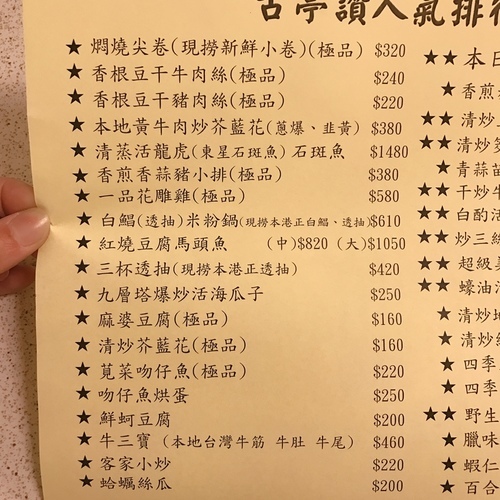 古亭讚人氣排
★ 燜燒尖卷(現撈新鮮小卷)(極品) $320
★ 香根豆干牛肉絲(極品) $240
★ 香根豆干豬肉絲(極品) $220
★ 本地黃牛肉炒芥藍花(蔥爆、韭黃) $380
★ 清蒸活龍虎(東星石斑魚) 石斑魚 $1480
★ 香煎香蒜豬小排(極品) $380
★ 一品花雕雞(極品) $580
★ 白鯧(透抽)米粉鍋(現撈本港正白鯧、透抽) $610
★ 紅燒豆腐馬頭魚 (中)$820 (大)$1050
★ 三杯透抽(現撈本港正透抽) $420
★ 九層塔爆炒活海瓜子 $250
★ 麻婆豆腐(極品) $160
★ 清炒芥藍花(極品) $160
★ 莧菜吻仔魚(極品) $220
★ 吻仔魚烘蛋 $250
★ 鮮蚵豆腐 $200
★ 牛三寶 (本地台灣牛筋 牛肚 牛尾) $460
★ 客家小炒 $220
★ 蛤蠣絲瓜 $200
★★ 本日
★ 香煎
★★ 清炒
★★ 清炒
★ 青蒜
★★ 干炒牛
★★ 白酌
★★ 炒三絲
★★ 超級
★★ 蠔油
★ 清炒
★ 清炒
★ 四季
★ 四季
★★ 野生
★ 臘味
★ 蝦仁
★ 百合